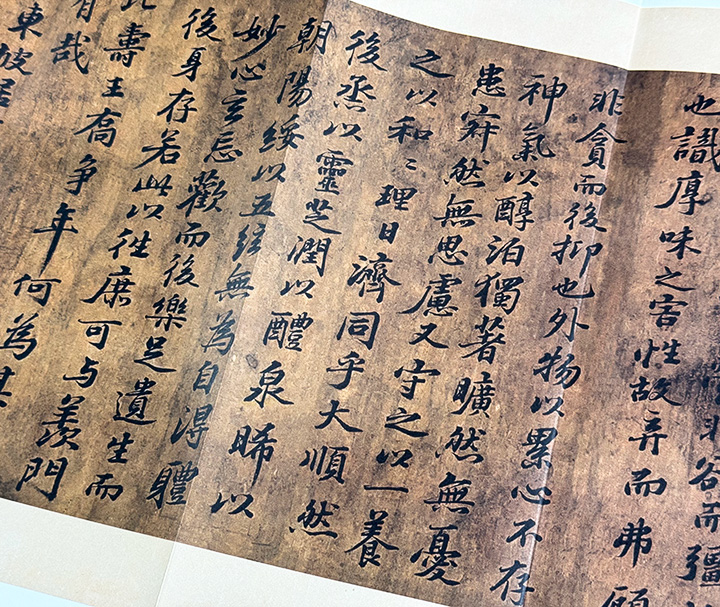 非欲而彊
也識厚味之害性故弃而弗顧
非貪而後抑也外物以累心不存
神氣以醇泊獨著曠然無憂
患寂然無思慮又守之以一養
之以和〻理日濟同乎大順然
後烝以靈芝潤以醴泉晞以
朝陽綏以五絃無為自得體
妙心玄忘歡而後樂足遺生而
後身存若此以往庶可与羨門
比壽王喬爭年何為其
有哉
東坡居